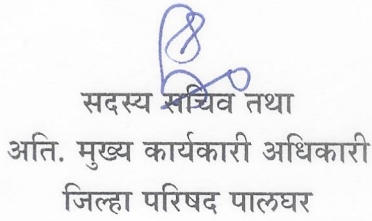 सदस्य सचिव तथा
अति. मुख्य कार्यकारी अधिकारी
जिल्हा परिषद पालघर